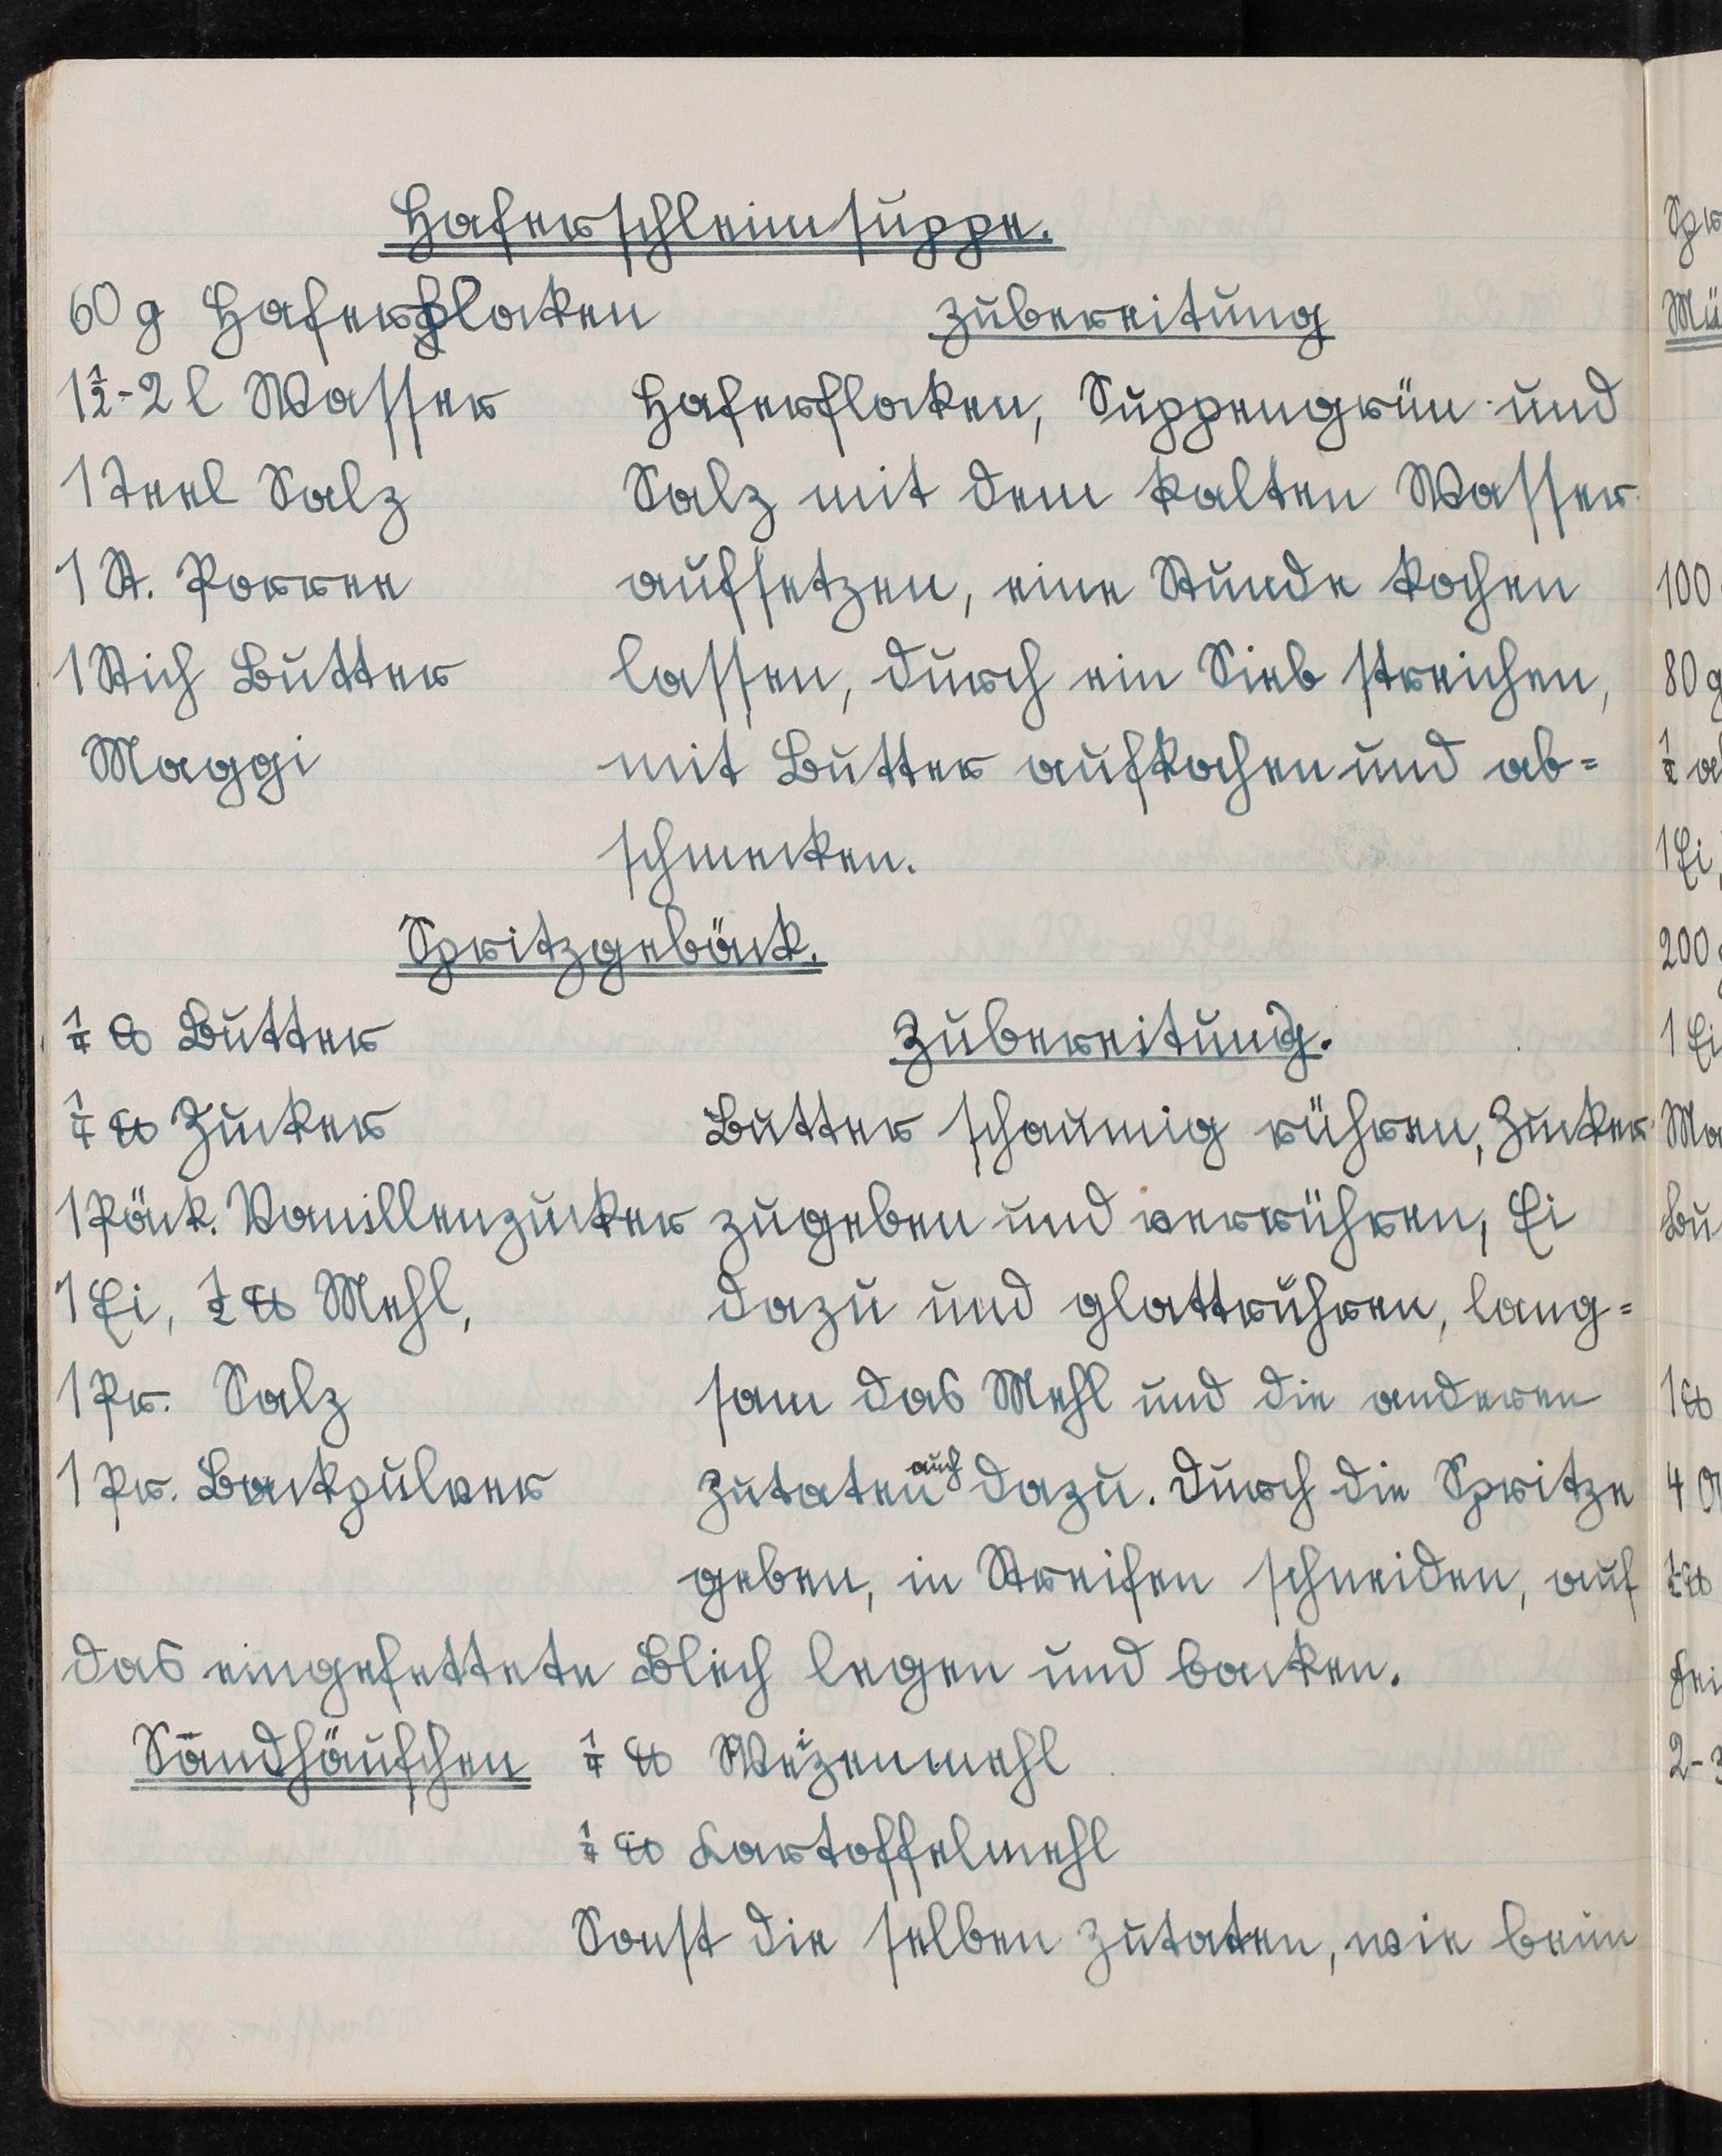 Haferschleimsuppe.
60 g Haferflocken
1½-2 l Wasser
1 Teel Salz
1 St. Porree
1 Stich Butter
Maggi
Zubereitung
Haferflocken, Suppengrün und
Salz mit dem kalten Wasser
aufsetzen, eine Stunde kochen
lassen, durch ein Sieb streichen,
mit Butter aufkochen und ab=
schmecken.
Spritzgebäck.
¼ ℔ Butter
¼ ℔ Zucker
1 Päck. Vanillenzucker
1 Ei, ½ ℔ Mehl,
1 Pr. Salz
1 Pr. Backpulver
Zubereitung.
Butter schaumig rühren, Zucker
zugeben und verrühren, Ei
dazu und glattrühren, lang=
sam das Mehl und die anderen
Zutaten auch dazu. Durch die Spritze
geben, in Streifen schneiden, auf
das eingefettete Blech legen und backen.
Sandhäufchen ¼ ℔ Weizenmehl
¼ ℔ Kartoffelmehl
Sonst die selben Zutaten, wie beim
100
80 g
1 Ei,
200 g
1 Ei
1 ℔
4
½ ℔
2-3